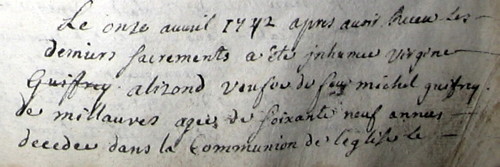 Le onze avvril 1742 apres avoir Receu Les
derniers sacrements a été inhumee virgine
Guiffrey alizond veufve de feu michel guifrey
de millaures agee de soixante neuf annees
decedee dans la Communion de l'eglise le